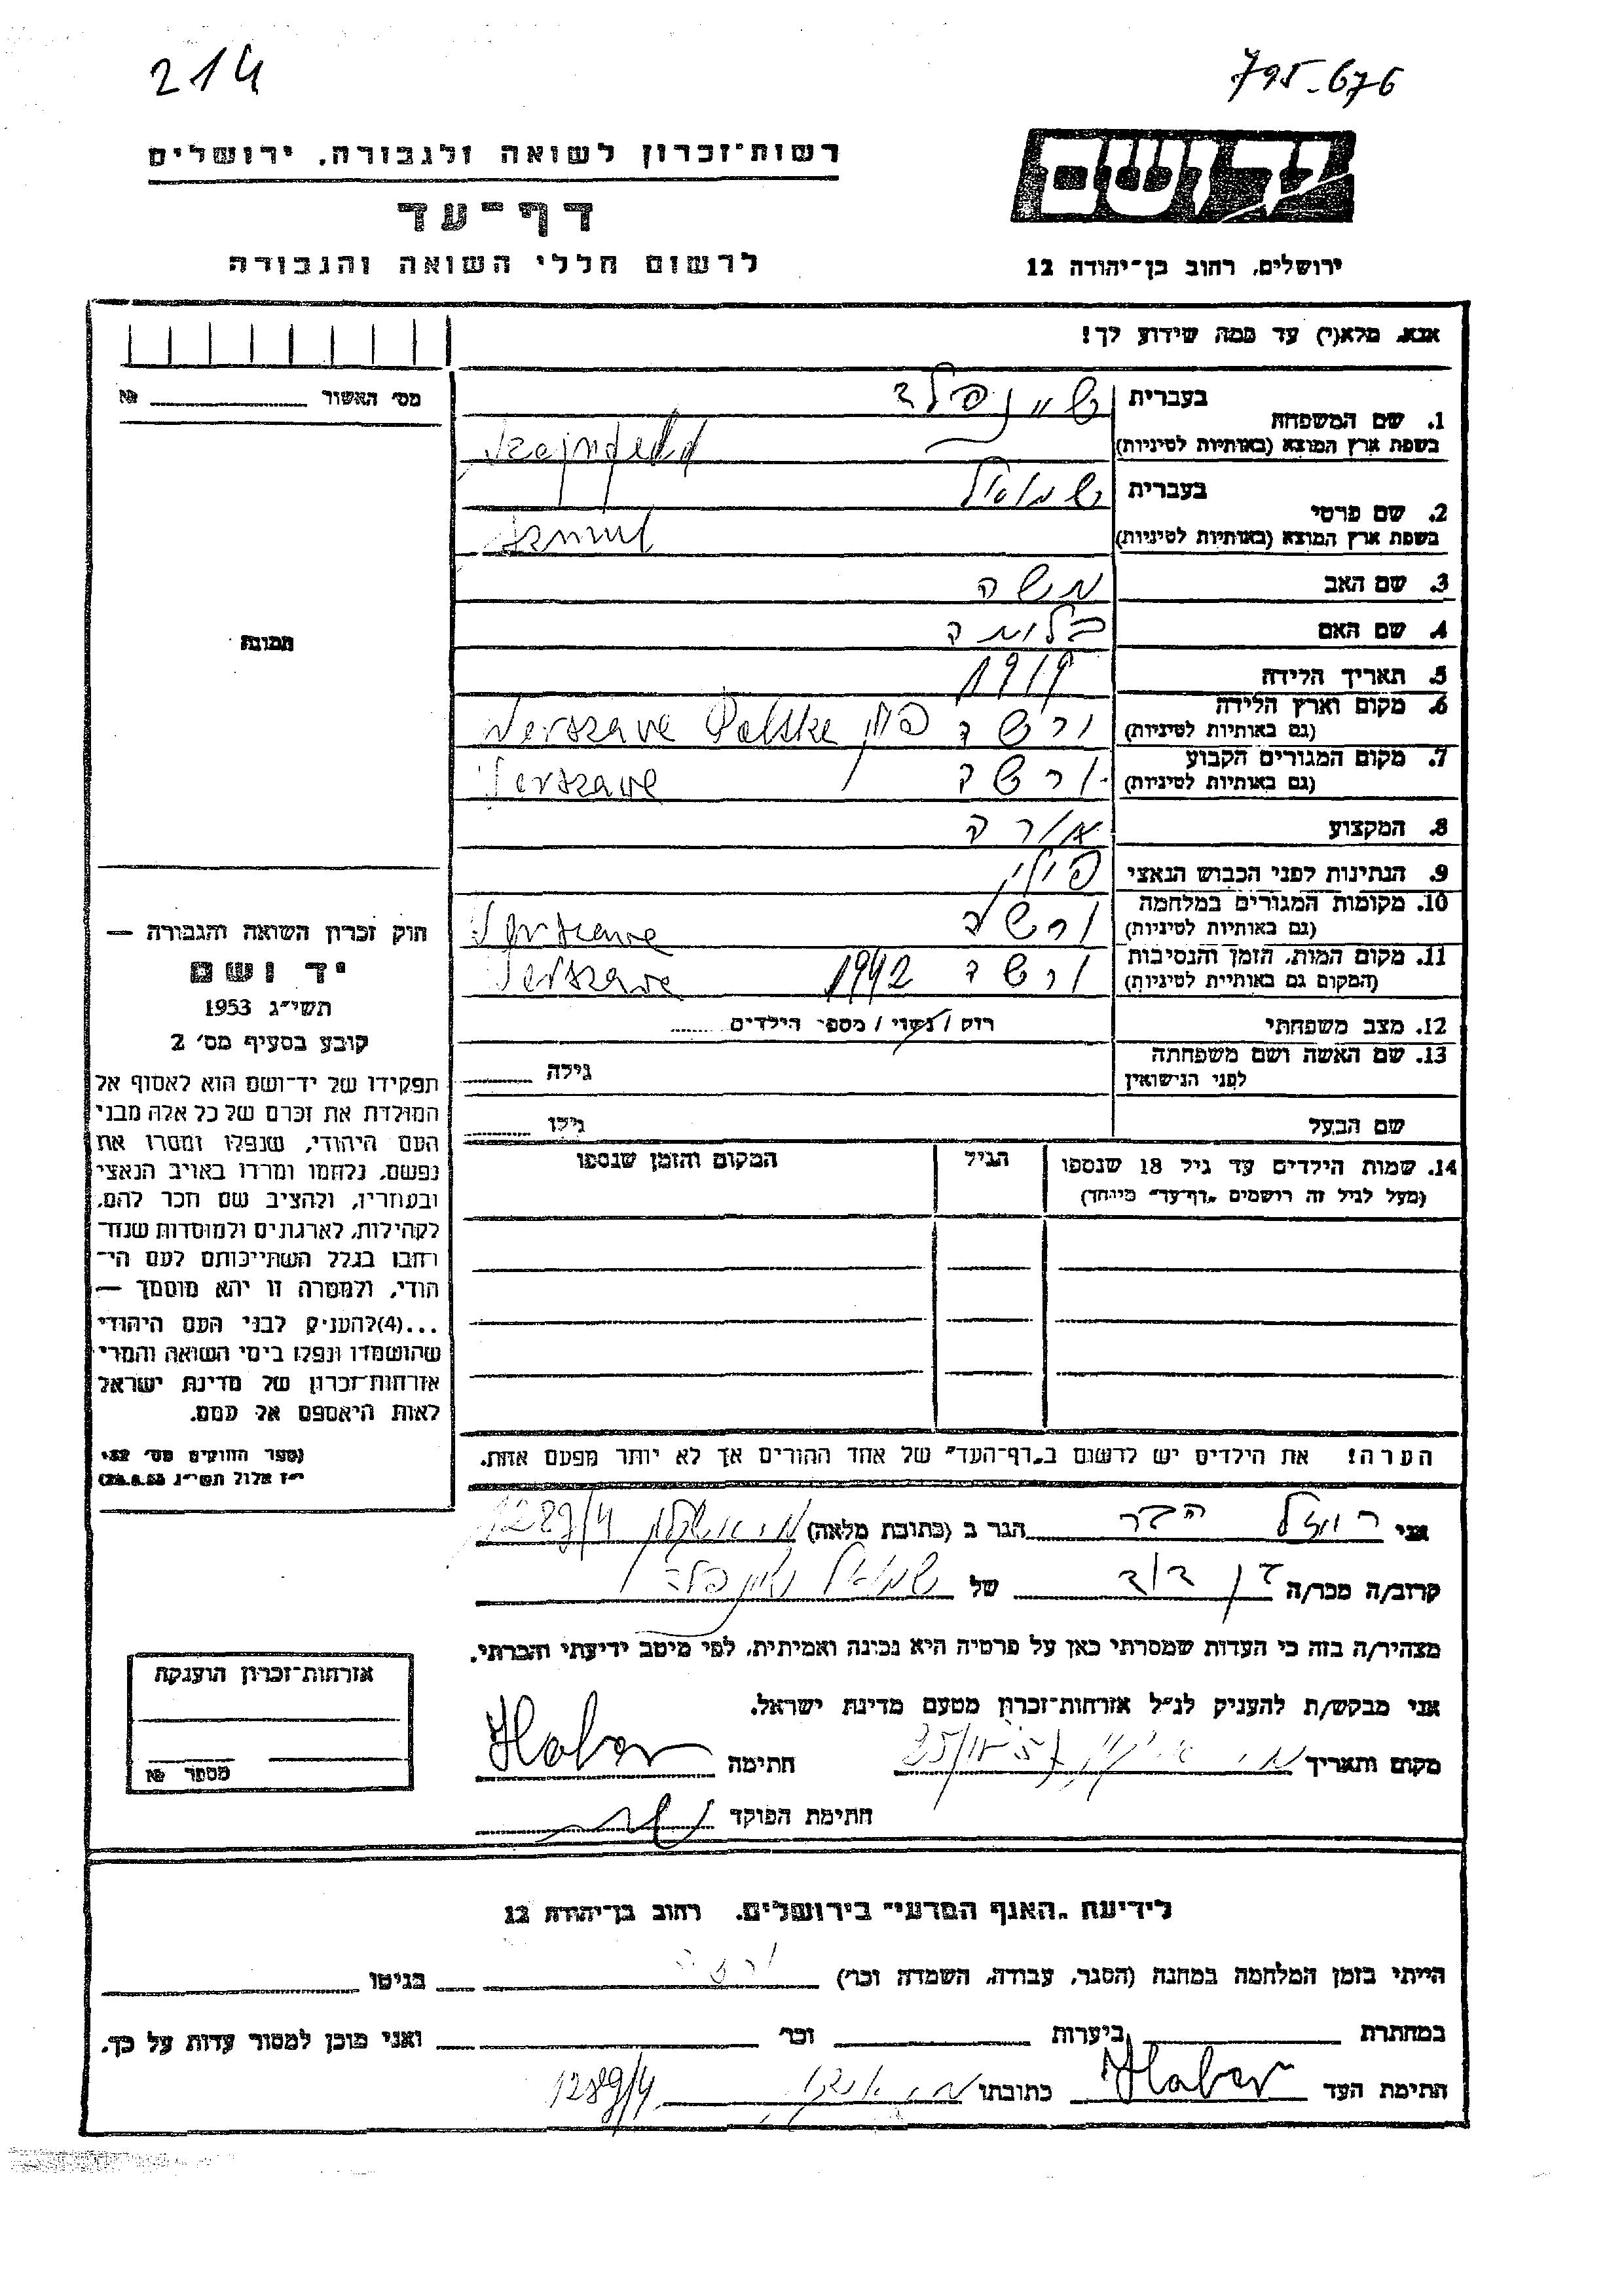 214
795-676
רשות־זכרון לשואה ולגבורה, ירושלים
יד ושם
דף־עד
לרשום חללי השואה והגבורה
ירושלים, רחוב בן־יהודה 12
אנא, מלא(י) עד כמה שידוע לך!
מס׳ האשור № 
1. שם המשפחה בעברית שיינפלד
בשפת ארץ המוצא (באותיות לטיניות) Szajnfeld
2. שם פרטי בעברית שמואל
בשפת ארץ המוצא (באותיות לטיניות) Szmul
3. שם האב משה
4. שם האם בלומה
תמונה
5. תאריך הלידה 1919
6. מקום וארץ הלידה (גם באותיות לטיניות) ורשה פולין Werszawe Polske
7. מקום המגורים הקבוע (גם באותיות לטיניות) ורשה Werszawe
8. המקצוע
9. הנתינות לפני הכבוש הנאצי פולין
10. מקומות המגורים במלחמה (גם באותיות לטיניות) ורשה Werszawe
11. מקום המות, הזמן והנסיבות (המקום גם באותיות לטיניות) ורשה 1942 Werszawe
12. מצב משפחתי רווק / נשוי / מספר הילדים
13. שם האשה ושם משפחתה לפני הנישואין גילה
שם הבעל גילו
14. שמות הילדים עד גיל 18 שנספו הגיל המקום והזמן שנספו
(מעל לגיל זה רושמים „דף־עד״ מיוחד)
חוק זכרון השואה והגבורה —
יד ושם
תשי״ג 1953
קובע בסעיף מס׳ 2
תפקידו של יד־ושם הוא לאסוף אל
המולדת את זכרם של כל אלה מבני
העם היהודי, שנפלו ומסרו את
נפשם, נלחמו ומרדו באויב הנאצי
ובעוזריו, ולהציב שם וזכר להם,
לקהילות, לארגונים ולמוסדות שנח־
רבו בגלל השתייכותם לעם הי־
הודי, ולמטרה זו יהא מוסמך —
...(4)להעניק לבני העם היהודי
שהושמדו ונפלו בימי השואה והמרי
אזרחות־זכרון של מדינת ישראל
לאות היאספם אל עמם.
(ספר החוקים מס׳ 132,
י״ז אלול תשי״ג 28.8.53)
הערה! את הילדים יש לרשום ב„דף־העד״ של אחד ההורים אך לא יותר מפעם אחת.
אני רוזל הבר הגר ב (כתובת מלאה) מ. אשקלון 1289/4
קרוב/ה מכר/ה בן דוד של שמואל שיינפלד
מצהיר/ה בזה כי העדות שמסרתי כאן על פרטיה היא נכונה ואמיתית, לפי מיטב ידיעתי והכרתי.
אני מבקש/ת להעניק לנ״ל אזרחות־זכרון מטעם מדינת ישראל.
מקום ותאריך חתימה Haber
חתימת הפוקד
אזרחות־זכרון הוענקה
מספר №
לידיעת „האגף המדעי״ בירושלים, רחוב בן־יהודה 12
הייתי בזמן המלחמה במחנה (הסגר, עבודה, השמדה וכר׳) בגיטו
במחתרת ביערות וכר׳ ואני מוכן למסור עדות על כך.
חתימת העד Haber כתובתו מ. אשקלון 1289/4